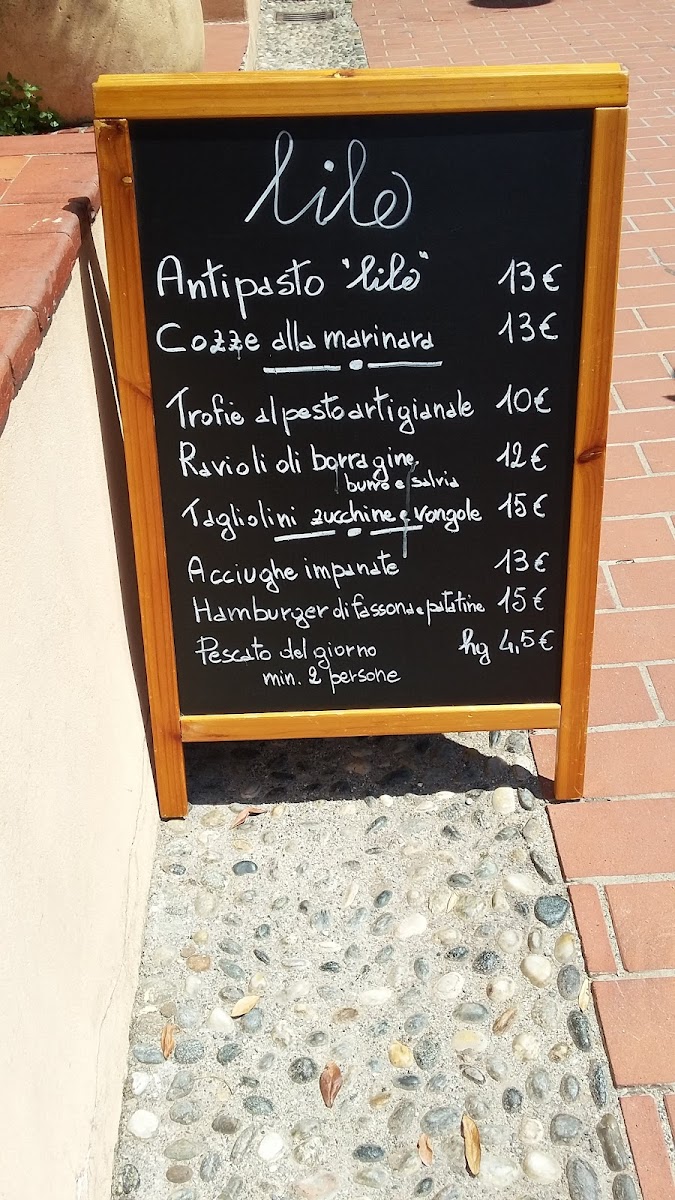 lilo
Antipasto "lilo" 13€
Cozze alla marinara 13€
Trofie al pesto artigianale 10€
Ravioli di borragine 12€
burro e salvia
Tagliolini zucchine e vongole 15€
Acciughe impanate 13€
Hamburger di fassona e patatine 15€
Pescato del giorno hg 4,5€
min. 2 persone